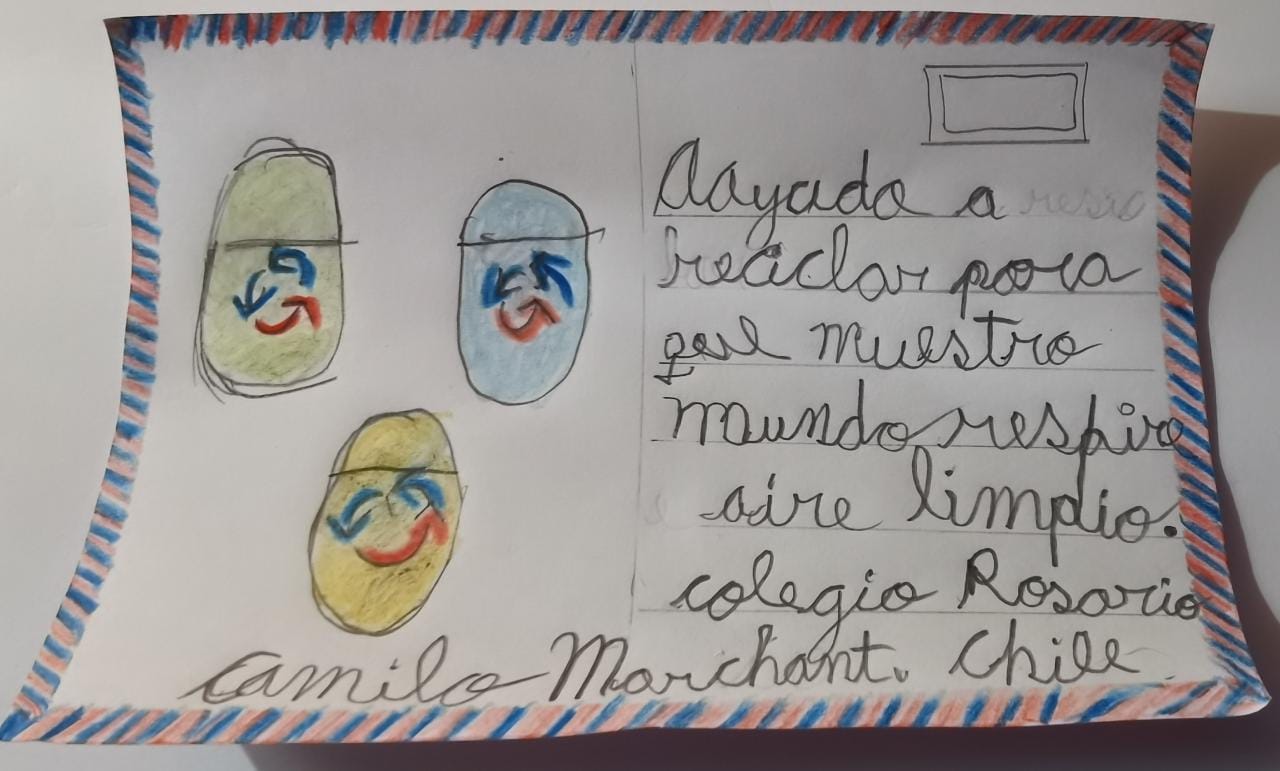 Aayuda a
reciclar para
que nuestro
mundo respire
aire limpio.
colegio Rosario
Camilo Marchant. Chile.